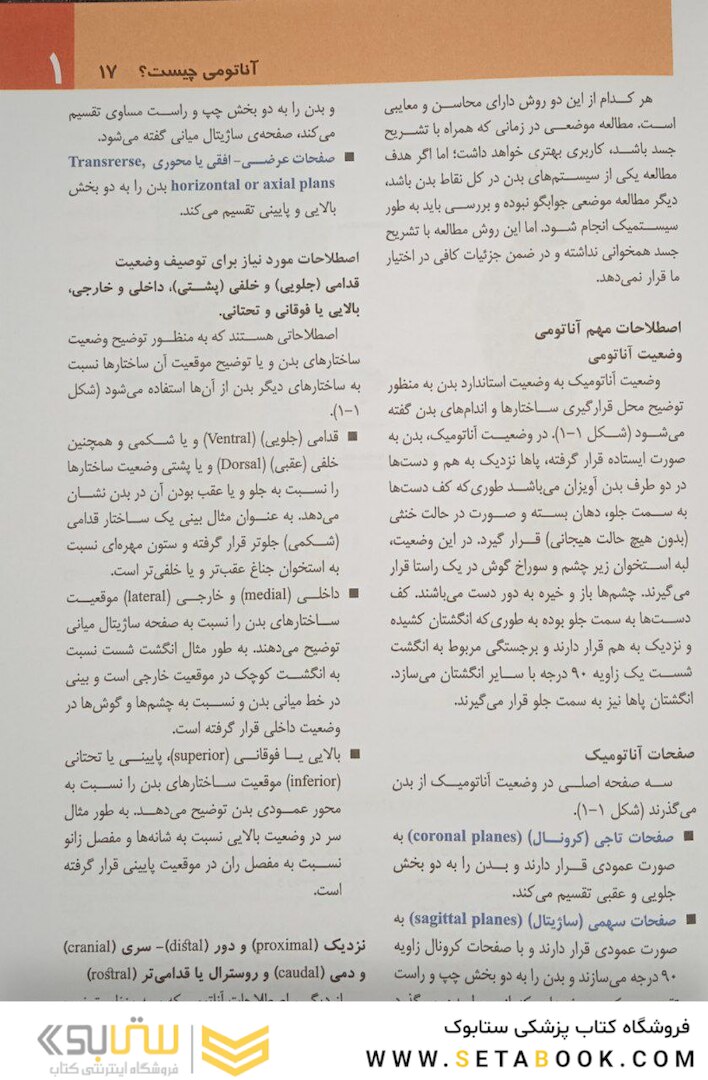 ۱
آناتومی چیست؟ ۱۷
هر کدام از این دو روش دارای محاسن و معایبی
است. مطالعه موضعی در زمانی که همراه با تشریح
جسد باشد، کاربری بهتری خواهد داشت؛ اما اگر هدف
مطالعه یکی از سیستم‌های بدن در کل نقاط بدن باشد،
دیگر مطالعه موضعی جوابگو نبوده و بررسی باید به طور
سیستمیک انجام شود. اما این روش مطالعه با تشریح
جسد همخوانی نداشته و در ضمن جزئیات کافی در اختیار
ما قرار نمی‌دهد.
اصطلاحات مهم آناتومی
وضعیت آناتومی
وضعیت آناتومیک به وضعیت استاندارد بدن به منظور
توضیح محل قرارگیری ساختارها و اندام‌های بدن گفته
می‌شود (شکل ۱-۱). در وضعیت آناتومیک، بدن به
صورت ایستاده قرار گرفته، پاها نزدیک به هم و دست‌ها
در دو طرف بدن آویزان می‌باشد طوری‌که کف دست‌ها
به سمت جلو، دهان بسته و صورت در حالت خنثی
(بدون هیچ حالت هیجانی) قرار گیرد. در این وضعیت،
لبه استخوان زیر چشم و سوراخ گوش در یک راستا قرار
می‌گیرند. چشم‌ها باز و خیره به دور دست می‌باشند. کف
دست‌ها به سمت جلو بوده به طوری‌که انگشتان کشیده
و نزدیک به هم قرار دارند و برجستگی مربوط به انگشت
شست یک زاویه ۹۰ درجه با سایر انگشتان می‌سازد.
انگشتان پاها نیز به سمت جلو قرار می‌گیرند.
صفحات آناتومیک
سه صفحه اصلی در وضعیت آناتومیک از بدن
می‌گذرند (شکل ۱-۱).
■ صفحات تاجی (کرونال) (coronal planes) به
صورت عمودی قرار دارند و بدن را به دو بخش
جلویی و عقبی تقسیم می‌کند.
■ صفحات سهمی (ساژیتال) (sagittal planes) به
صورت عمودی قرار دارند و با صفحات کرونال زاویه
۹۰ درجه می‌سازند و بدن را به دو بخش چپ و راست
و بدن را به دو بخش چپ و راست مساوی تقسیم
می‌کند، صفحه‌ی ساژیتال میانی گفته می‌شود.
■ صفحات عرضی-افقی یا محوری Transrerse,
horizontal or axial plans بدن را به دو بخش
بالایی و پایینی تقسیم می‌کند.
اصطلاحات مورد نیاز برای توصیف وضعیت
قدامی (جلویی) و خلفی (پشتی)، داخلی و خارجی،
بالایی یا فوقانی و تحتانی.
اصطلاحاتی هستند که به منظور توضیح وضعیت
ساختارهای بدن و یا توضیح موقعیت آن ساختارها نسبت
به ساختارهای دیگر بدن از آن‌ها استفاده می‌شود (شکل
۱-۱).
■ قدامی (جلویی) (Ventral) و یا شکمی و همچنین
خلفی (عقبی) (Dorsal) و یا پشتی وضعیت ساختارها
را نسبت به جلو و یا عقب بودن آن در بدن نشان
می‌دهد. به عنوان مثال بینی یک ساختار قدامی
(شکمی) جلوتر قرار گرفته و ستون مهره‌ای نسبت
به استخوان جناغ عقب‌تر و یا خلفی‌تر است.
■ داخلی (medial) و خارجی (lateral) موقعیت
ساختارهای بدن را نسبت به صفحه ساژیتال میانی
توضیح می‌دهند. به طور مثال انگشت شست نسبت
به انگشت کوچک در موقعیت خارجی است و بینی
در خط میانی بدن و نسبت به چشم‌ها و گوش‌ها در
وضعیت داخلی قرار گرفته است.
■ بالایی یا فوقانی (superior)، پایینی یا تحتانی
(inferior) موقعیت ساختارهای بدن را نسبت به
محور عمودی بدن توضیح می‌دهد. به طور مثال
سر در وضعیت بالایی نسبت به شانه‌ها و مفصل زانو
نسبت به مفصل ران در موقعیت پایینی قرار گرفته
است.
نزدیک (proximal) و دور (distal)- سری (cranial)
و دمی (caudal) و روسترال یا قدامی‌تر (rostral)
فروشگاه کتاب پزشکی ستابوک
WWW.SETABOOK.COM
ستابوک
فروشگاه اینترنتی کتاب